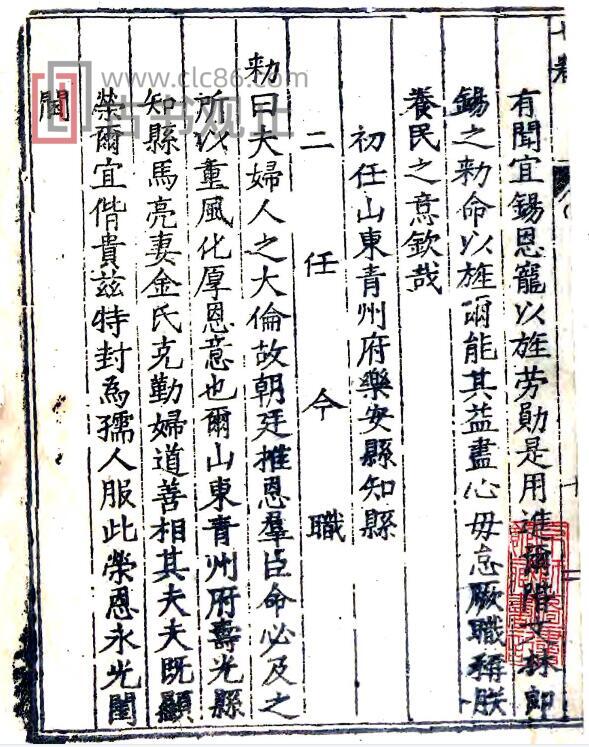 七卷
有聞宜錫恩寵以旌勞勛是用進爾階文林郎
錫之勑命以旌爾能其益盡心毋怠厥職稱朕
養民之意欽哉
初任山東青州府樂安縣知縣
二任今職
勑曰夫婦人之大倫故朝廷推恩羣臣命必及之
所以重風化厚恩意也爾山東青州府壽光縣
知縣馬亮妻金氏克勤婦道善相其夫夫既顯
榮爾宜偕貴茲特封為孺人服此榮恩永光閨
閫
www.clc86.com
古书观止